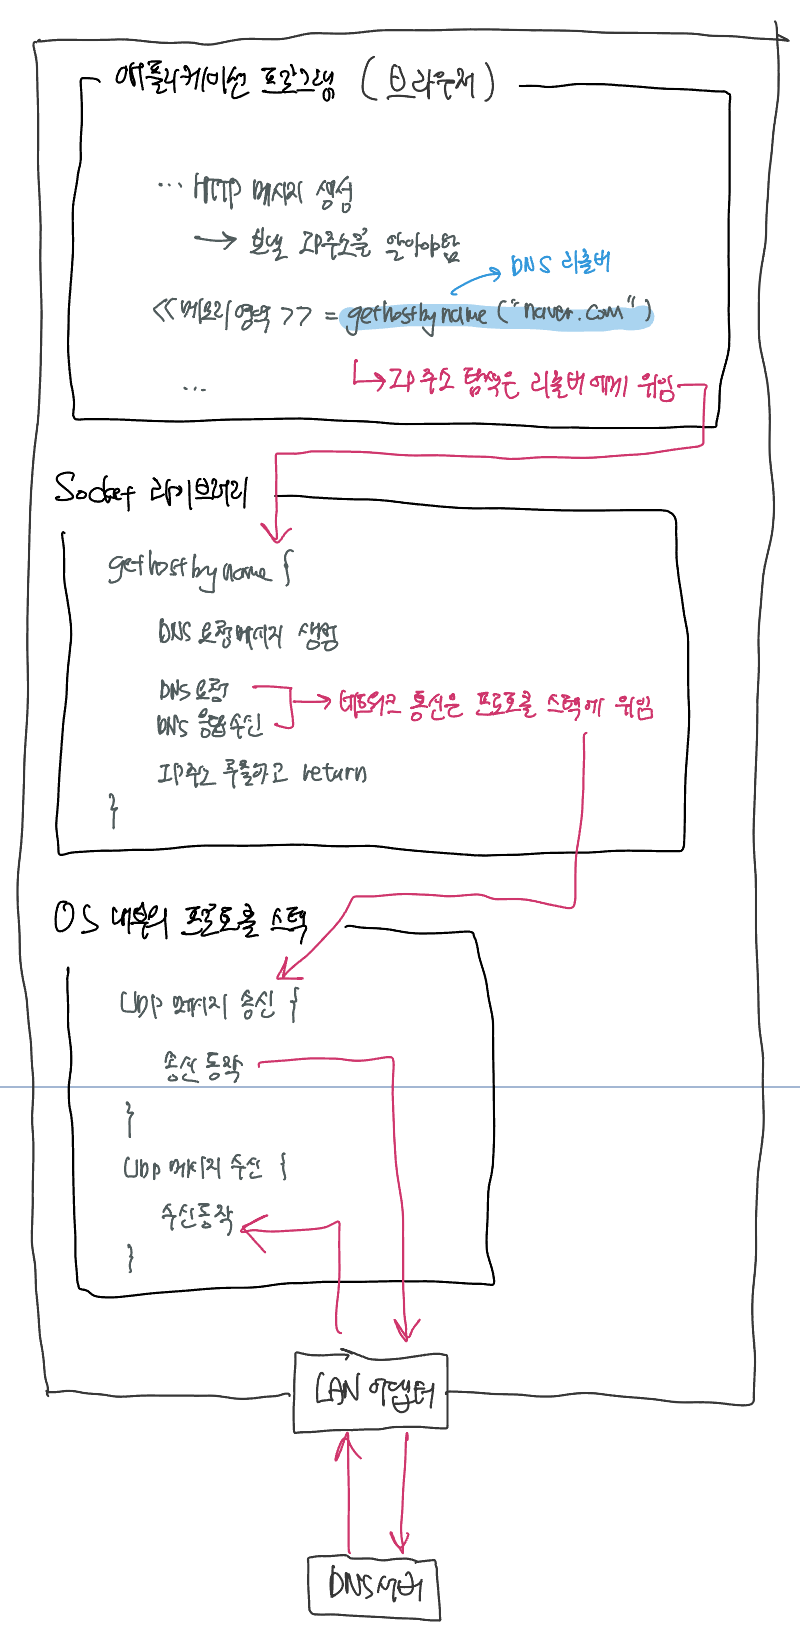 애플리케이션 프로그램 (브라우저)
... HTTP 메시지 생성
→ 보낼 IP주소를 알아야함
DNS 리졸버
<<메모리영역>> = gethostbyname ("naver.com")
→ IP주소 탐색은 리졸버에게 위임
...
Socket 라이브러리
gethostbyname {
DNS 요청메시지 생성
DNS 요청
→ 네트워크 통신은 프로토콜 스택에 위임
DNS 응답수신
IP주소 추출하고 return
}
OS 내부의 프로토콜 스택
UDP 메시지 송신 {
송신동작
}
UDP 메시지 수신 {
수신동작
}
LAN 어댑터
DNS서버